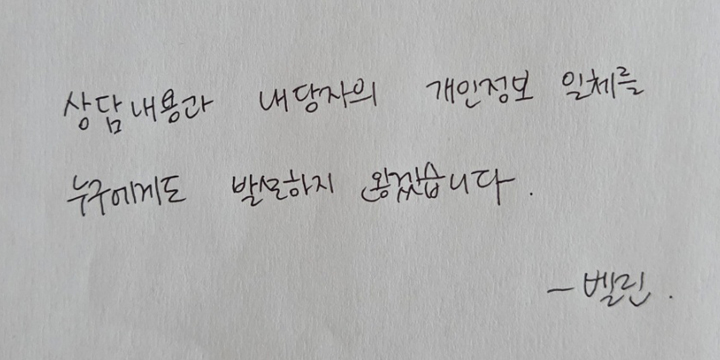 상담내용과 내담자의 개인정보 일체를
누구에게도 발설하지 않겠습니다.
-벨린.